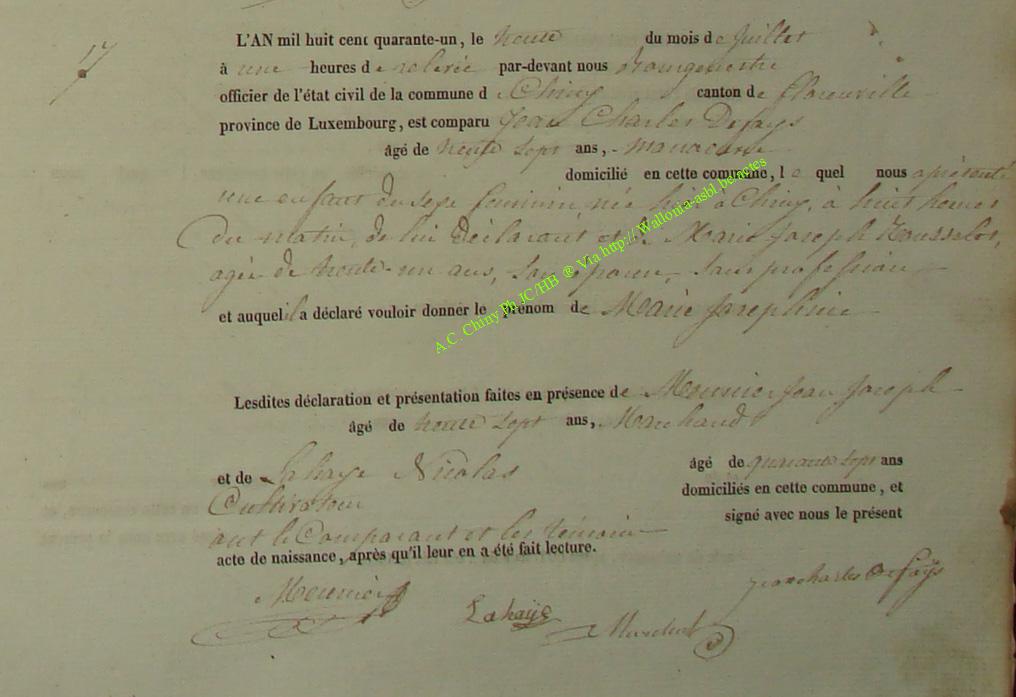 17
L'AN mil huit cent quarante-un, le trente du mois de juillet
à une heures de relevée par-devant nous Bourgmestre
officier de l'état civil de la commune d e Chiny canton de florenville
province de Luxembourg, est comparu Jean Charles Defays
âgé de trente sept ans, manœuvre
domicilié en cette commune, l e quel nous a présenté
une enfant du sexe féminin née hier à Chiny, à huit heures
du matin, de lui déclarant et de Marie Joseph Rousselot,
agée de trente-un ans, son épouse, sans profession
et auquel il a déclaré vouloir donner le prénom de Marie Josephine
Lesdites déclaration et présentation faites en présence de Meunier Jean Joseph
âgé de trente sept ans, Marchand
et de Lahaye Nicolas âgé de quarante sept ans
Cultivateur domiciliés en cette commune, et
ont le Comparant et les témoins signé avec nous le présent
acte de naissance, après qu'il leur en a été fait lecture.
Meunier Lahaÿe jean charles Defaÿs
A.C. Chiny Ph JC/HB ® Via http:// Wallonia-asbl.be/actes